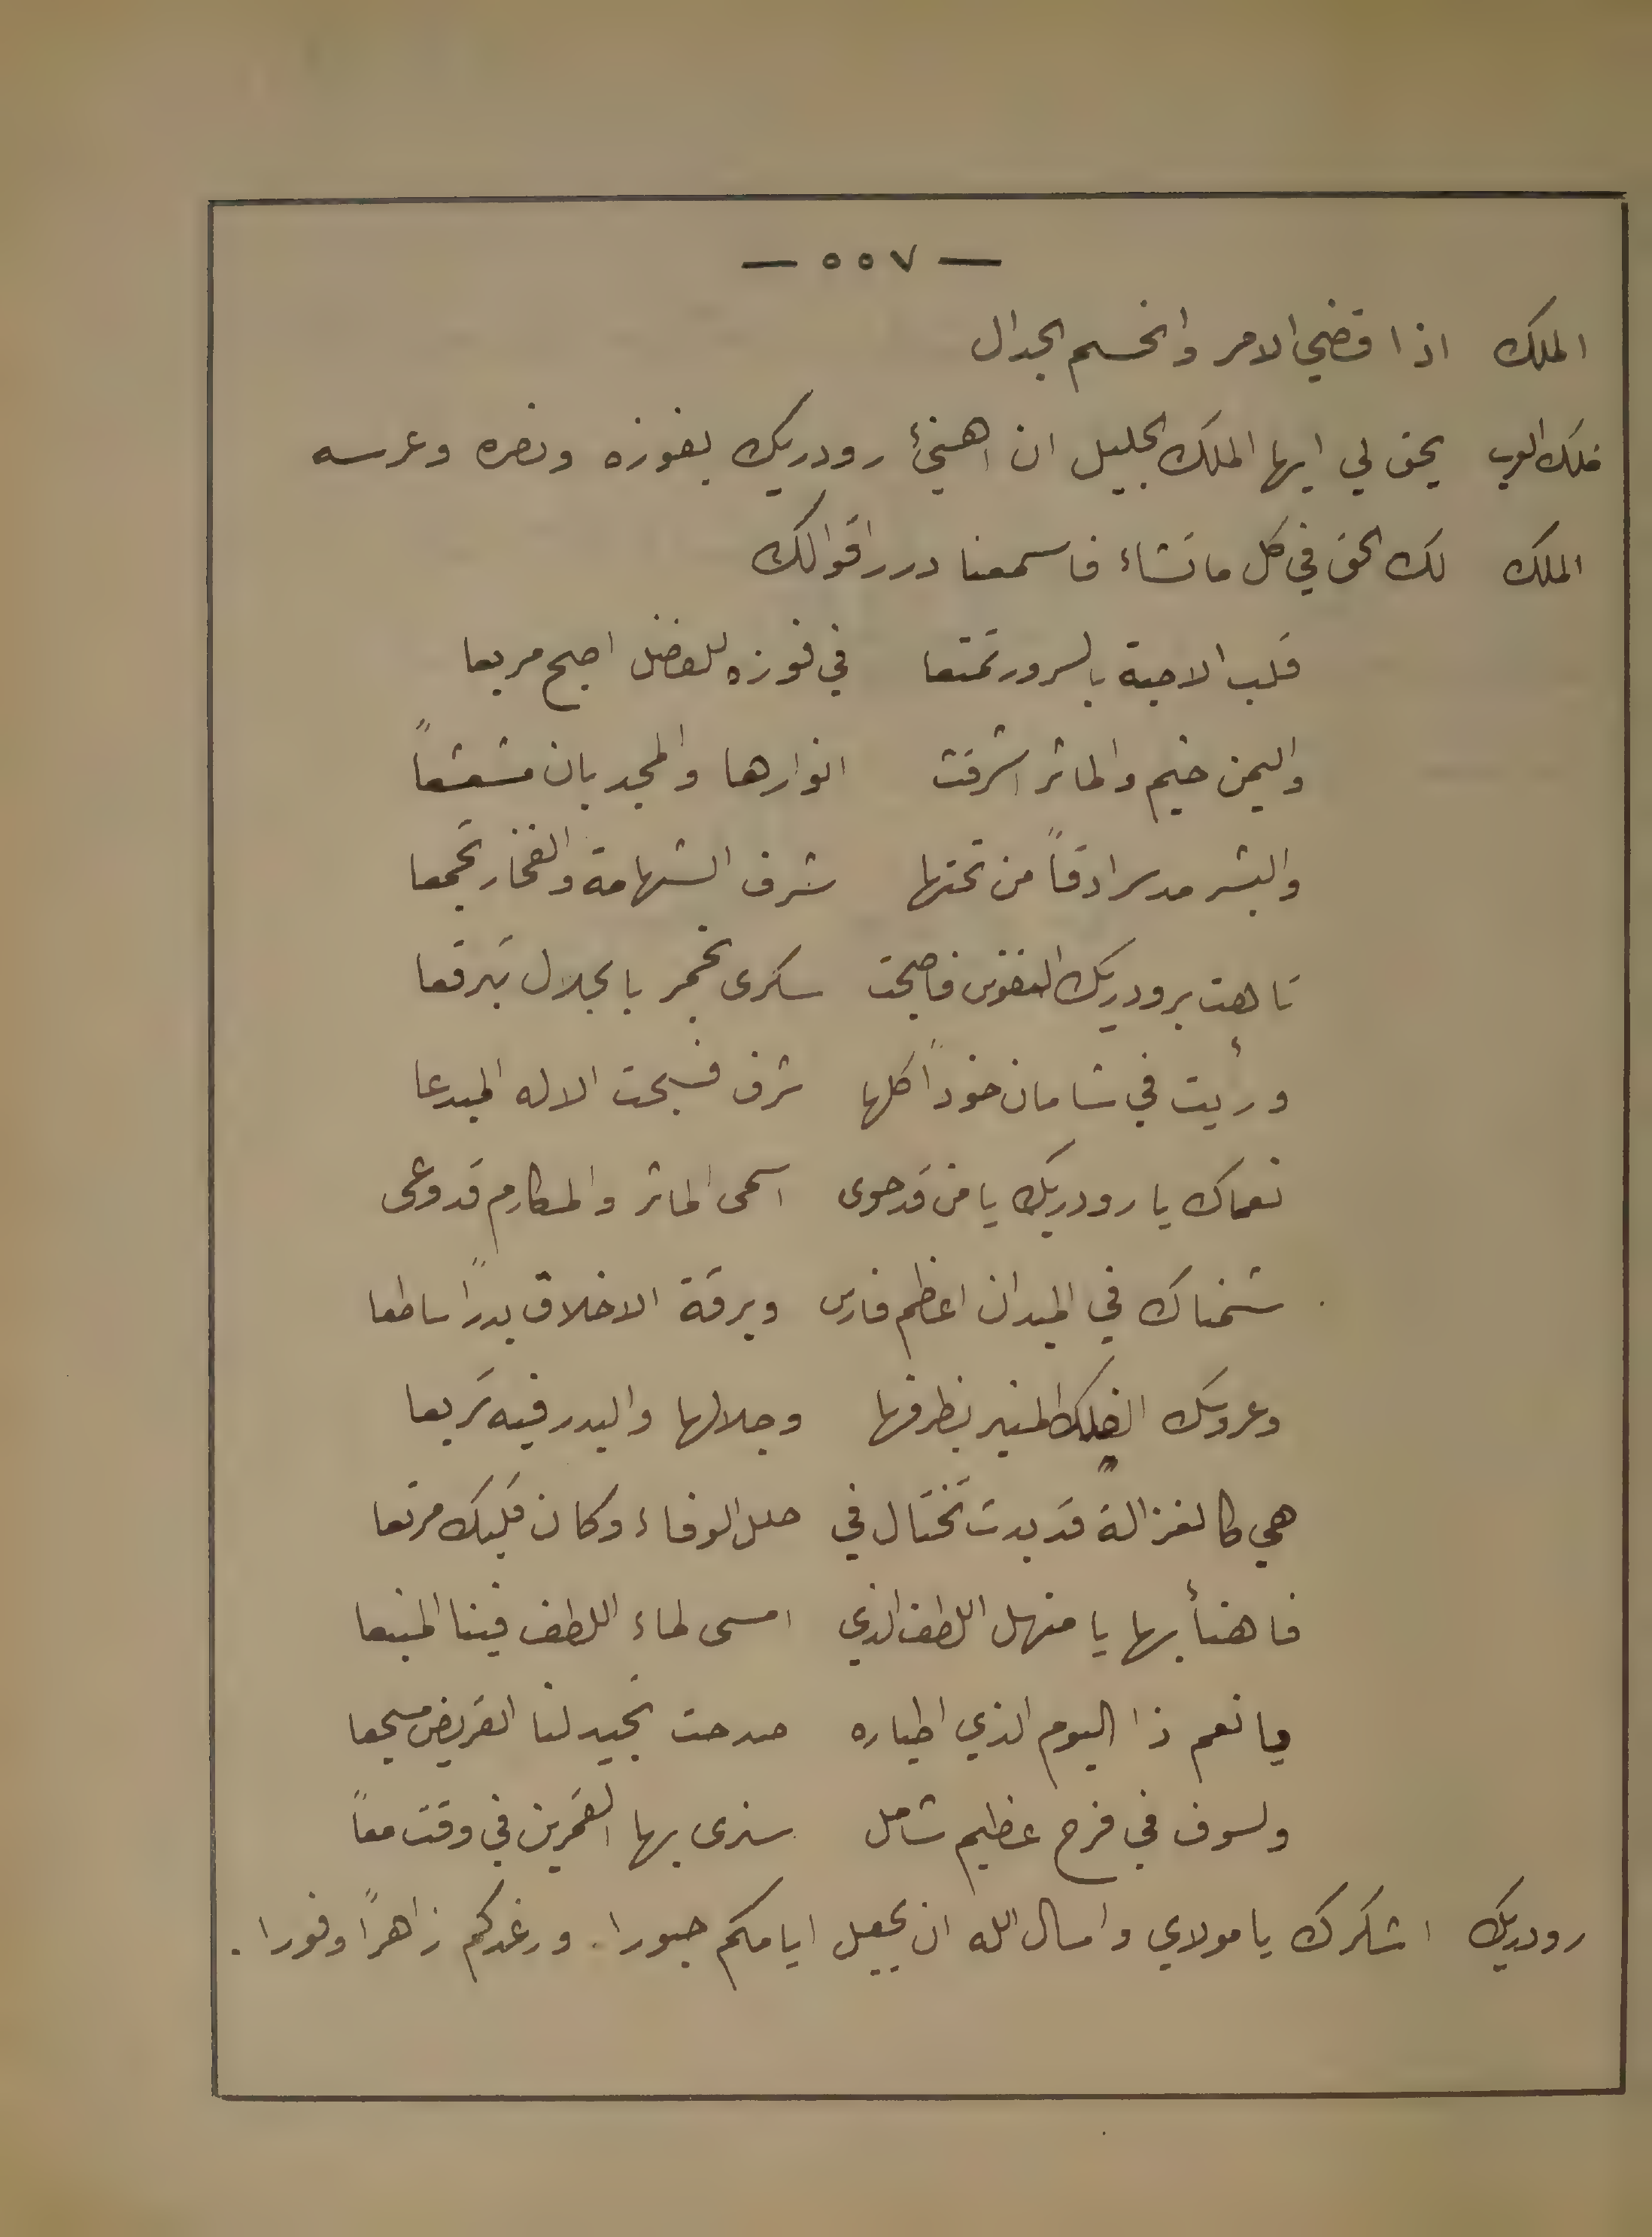 — ٥٥٧ —
الملك اذا قضي الامر وانحسم الجدال
ملك العرب يحق لي ايها الملك الجليل ان اهنئ رودريك بفوزه ونصره وعرسه
الملك لك الحق في كل ما تشاء فاسمعنا درر اقوالك
قلب الاحبة بالسرور تمتعا في فوزه للفضل اصبح مربعا
واليمن خيم والمآثر اشرقت انوارها والمجد بان مشعشعاً
والبشر مد سرادقاً من تحتها شرف الشهامة والفخار تجمعا
تاهت برودريك النفوس فاصبحت سكرى بخمر بالجلال تبرقعا
ورأيت في شامان خوداً كلها شرف فسبحت الاله المبدعا
نعماك يا رودريك يا من قد حوى اسمى المآثر والمكارم قد وعى
شمناك في الميدان اعظم فارس وبرقة الاخلاق بدراً ساطعا
وعروسك الفلك المنير بظرفها وجلالها والبدر فيه تربعا
هي كالغزالة قد بدت تختال في حلل الوفاء وكان قلبك مرتعا
فاهنأ بها يا منهل اللطف الذي امسى لماء اللطف فينا المنبعا
يا نعم ذا اليوم الذي اطياره صدحت تجيد لنا القريض مسجعا
ولسوف في فرح عظيم شامل سنرى بها القمرين في وقت معاً
رودريك اشكرك يا مولاي واسال الله ان يجعل ايامكم حبورا. ورغدكم زاهراً وفورا.